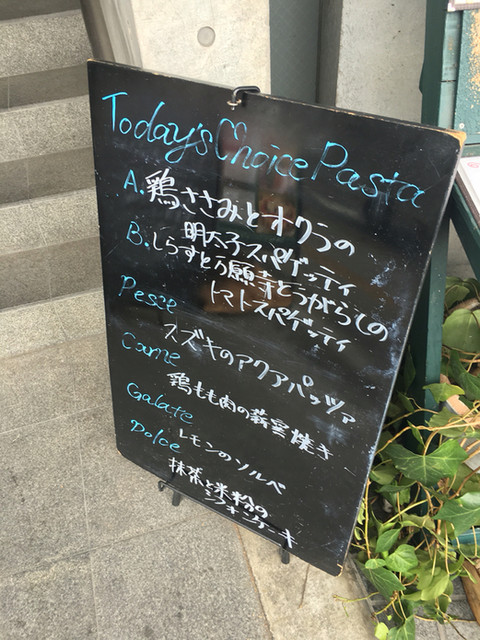 Today's Choice Pasta
A. 鶏ささみとオクラの
明太子スパゲッティ
B. しらすと万願寺とうがらしの
トマトスパゲッティ
Pesce
スズキのアクアパッツァ
Carne
鶏もも肉の薪窯焼き
Galate
レモンのソルベ
Dolce
抹茶と米粉の
シフォンケーキ